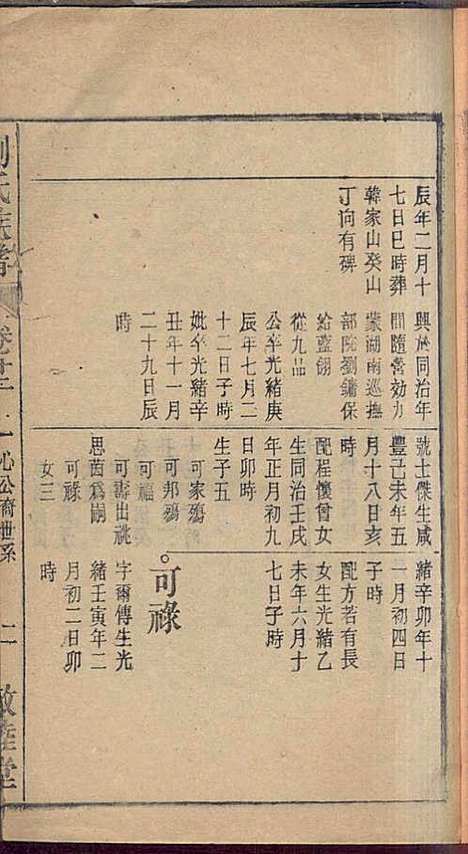 辰年二月十
七日巳時葬
韓家山癸山
丁向有碑
興於同治年
間隨營効力
蒙湖南巡撫
部院劉鏞保
給藍翎
從九品
公卒光緒庚
辰年七月二
十二日子時
妣卒光緒辛
丑年十一月
二十九日辰
時
號士傑生咸
豐己未年五
月十八日亥
時
配程懷曾女
生同治壬戌
年正月初九
日卯時
生子五
可家殤
可邦殤
可福
可壽出祧
思茵爲嗣
可祿
女三
緒辛卯年十
一月初四日
子時
配方若有長
女生光緒乙
未年六月十
七日子時
可祿
字爾傳生光
緒壬寅年二
月初二日卯
時
氏族譜
卷十二
一心公裔世系
二
敦睦堂